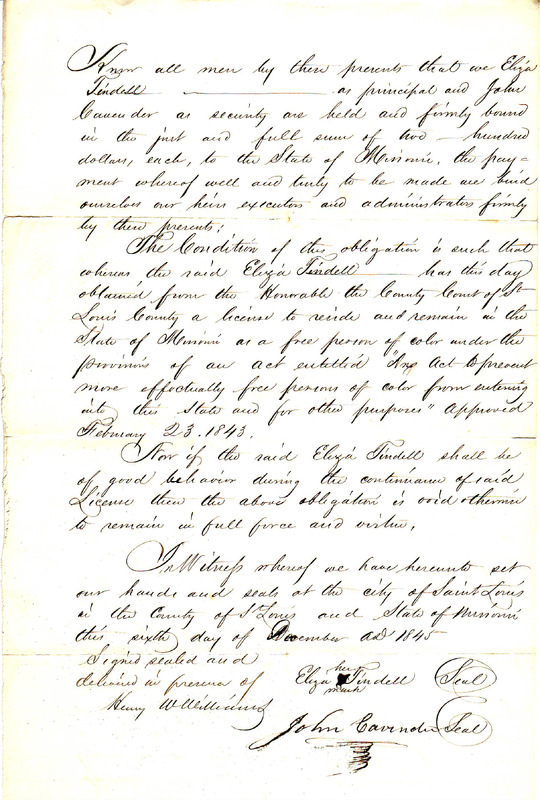 Know all men by these presents that we Eliza
Tindell ———— as principal and John
Cavender as security are held and firmly bound
in the just and full sum of two — hundred
dollars, each, to the State of Missouri, the pay=
ment whereof well and truly to be made we bind
ourselves our heirs executors and administrators firmly
by these presents;
The Condition of this obligation is such that
whereas the said Eliza Tindell —— has this day
obtained from the Honorable the County Court of St
Louis County a license to reside and remain in the
State of Missouri as a free person of color under the
provisions of an act entitled "An Act to prevent
more effectually free persons of color from entering
into this State and for other purposes" approved
February 23. 1843.
Now if the said Eliza Tindell shall be
of good behavior during the continuance of said
License then the above obligation is void otherwise
to remain in full force and virtue.
In Witness whereof we have hereunto set
our hands and seals at the city of Saint Louis
in the County of St Louis and State of Missouri
this sixth day of December AD 1845
Signed sealed and
delivered in presence of
Henry W Williams
her
Eliza Tindell Seal
mark
John Cavender Seal